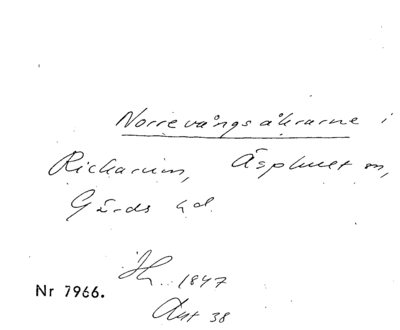 Norrevångsåkrarne i
Rickarum, Äsphult sn,
Gärds hd.
Nr 7966.
1847
Akt 38